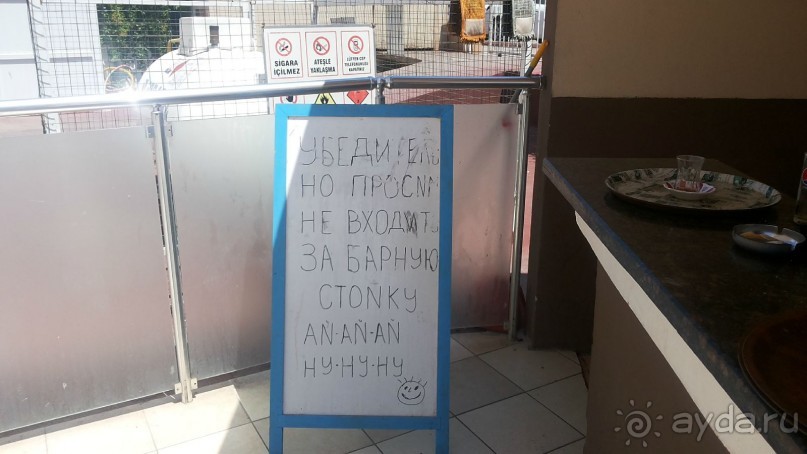 SİGARA İÇİLMEZ
ATEŞLE YAKLAŞMA
LÜTFEN CEP TELEFONUNUZU KAPATINIZ
УБЕДИТЕЛЬ
НО ПРОСИМ
НЕ ВХОДИТЬ
ЗА БАРНУЮ
СТОЙКУ
АЙ-АЙ-АЙ
НУ-НУ-НУ
ayda.ru